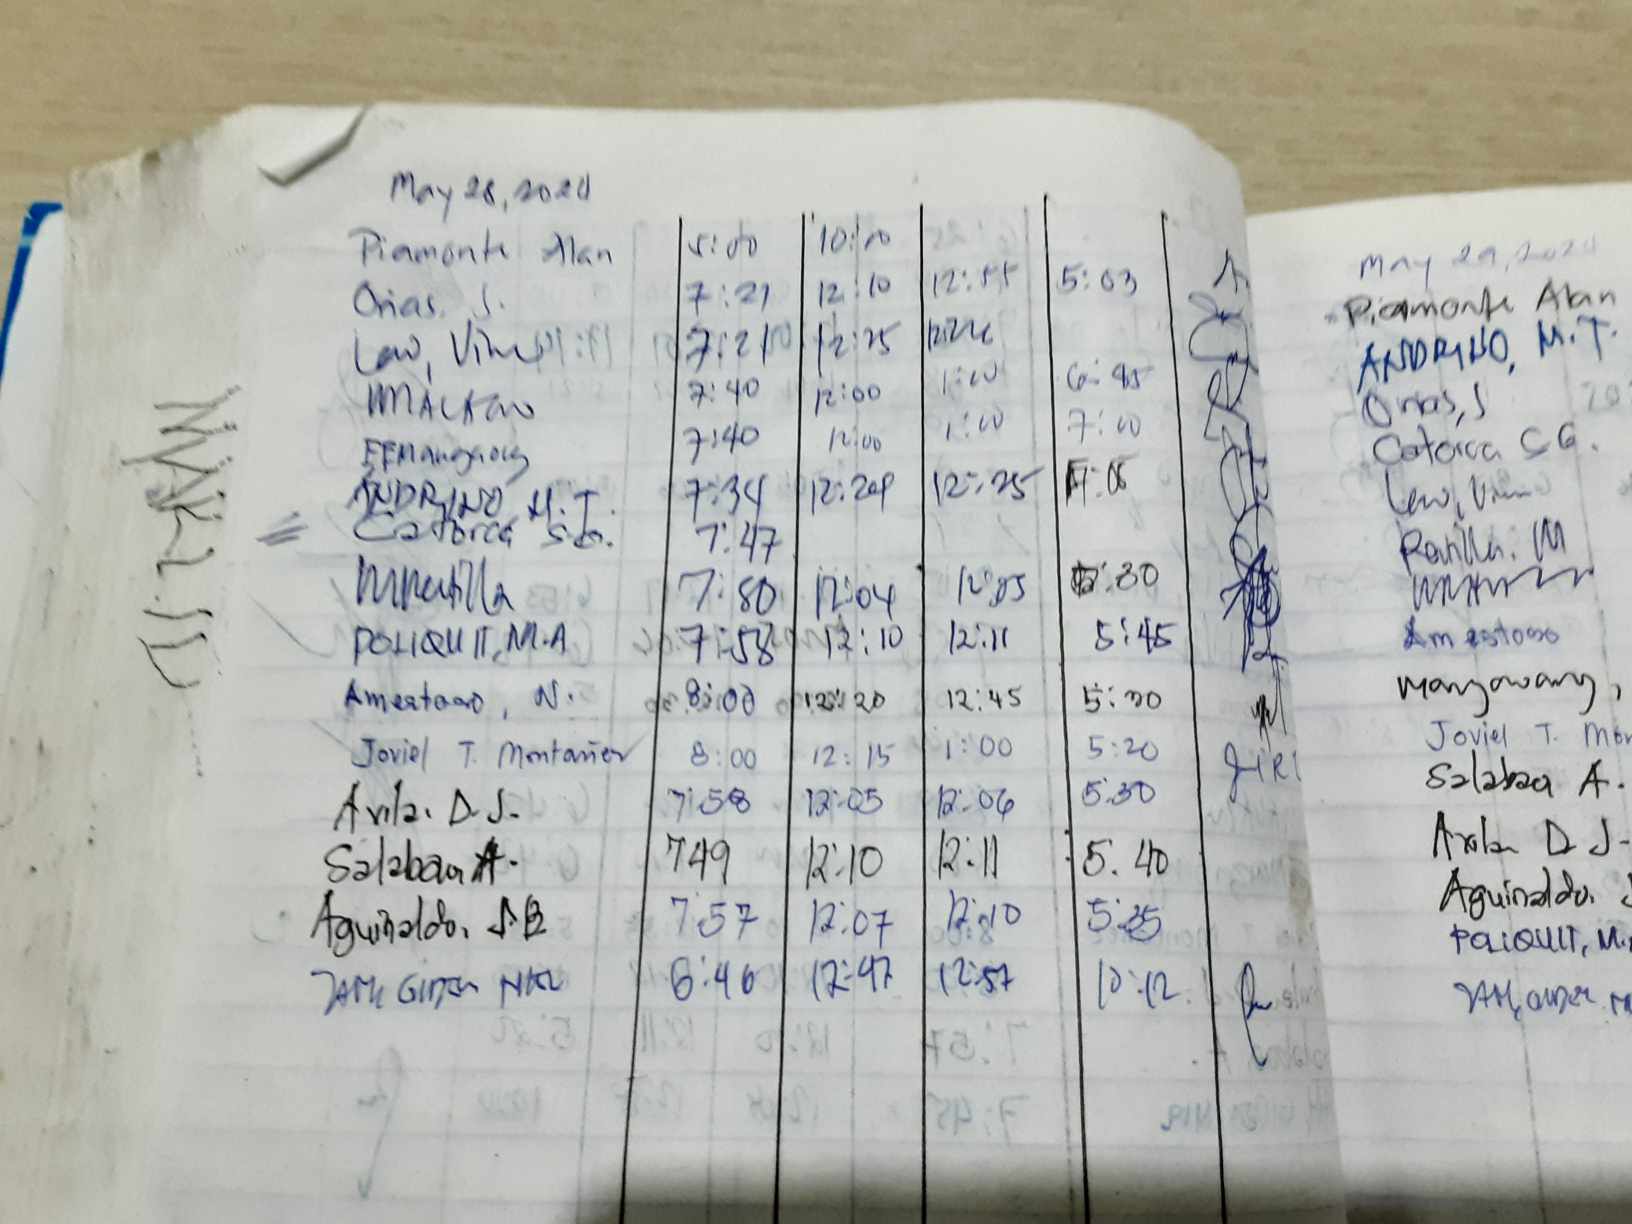 May 28, 2024
Piamonte Alan 5:00 10:00
Orias. S. 7:21 12:10 12:55 5:03
Law, 7:21 12:25 12:26
7:40 12:00 1:00 6:45
7:40 12:00 1:00 7:00
ANDRINO M.T. 7:34 12:24 12:25 5:05
Catorca S.G. 7:47
MRatilla 7:50 12:04 12:05 5:30
POLIQUIT, M.A 7:58 12:10 12:11 5:45
Amestoso, N. 8:00 12:20 12:45 5:30
Joviel T. Montañer 8:00 12:15 1:00 5:20
Avila. D.J. 7:58 12:05 12:06 5:30
Salabao A. 749 12:10 12:11 5.40
Aguinaldo. J.B 7:57 12:07 12:10 5:35
6:46 12:47 12:57 10:12
May 29, 2024
Piamonte Alan
ANDRINO, M.T.
Orias, S
Catorca S G.
Ratilla. M
Amestoso
Mangowang,
Joviel T. Mon
Salabao A.
Avila D J-
Aguinaldo.
POLIQUIT, M.